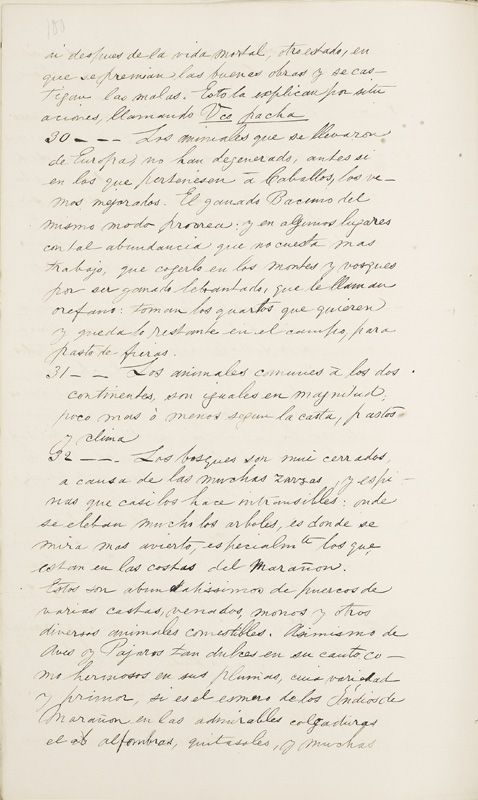 100
ni despues de la vida mortal, otro estado, en
que se premian las buenas obras y se cas-
tigan las malas. Esto la explican por situ
aciones, llamando Vco pacha
30 - - - Los animales que se llevaron
de Europa, no han degenerado, antes si
en los que pertenesen a Caballos, los ve-
mos mejorados. El ganado Bacuno del
mismo modo procrea: y en algunos lugares
con tal abundancia que no cuesta mas
trabajo, que cogerlo en los montes y vosques
por ser ganado lebantado, que le llaman
orefano: toman los quartos que quieren
y queda lo restante en el campo, para
pasto de fieras.
31 - - Los animales comunes a los dos
continentes, son iguales en magnitud,
poco mas ò menos segun la casta, pastos
y clima
32 - - - Los bosques son mui cerrados,
a causa de las muchas zarzas, y espi-
nas que casi los hace intransibles: onde
se eleban mucho los arboles, es donde se
mira mas avierto, especialmte los que
estan en las costas del Marañon.
Estos son abundatissimos de puercos de
varias castas, venados, monos y otros
diversos animales comestibles. Asimismo de
Aves y Pajaros tan dulces en su canto, co-
mo hermosos en sus plumas, cuia variedad
y primor, si es el esmero de los Indios de
Marañon en las admirables colgaduras
el ab alfombras, quitasoles, y muchas